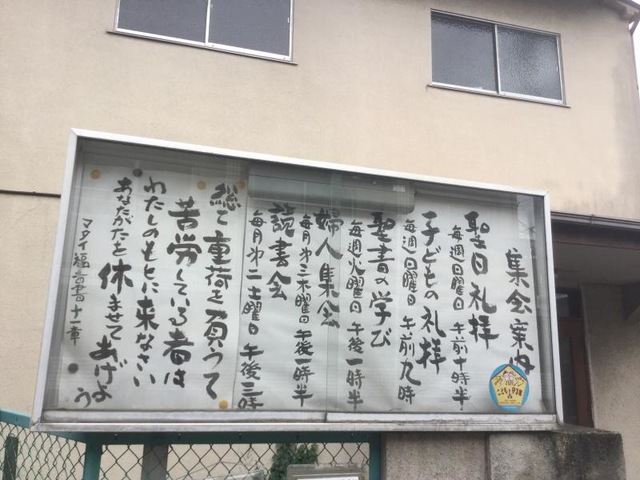 集会案内
聖日礼拝
毎週日曜日 午前十時半
子どもの礼拝
毎週日曜日 午前九時
聖書の学び
毎週火曜日 午後一時半
婦人集会
毎月第三木曜日 午後一時半
読書会
毎月第二土曜日 午後三時
総て重荷を負うて
苦労している者は
わたしのもとに来なさい
あなたがたを休ませてあげよう
マタイ福音書十一章